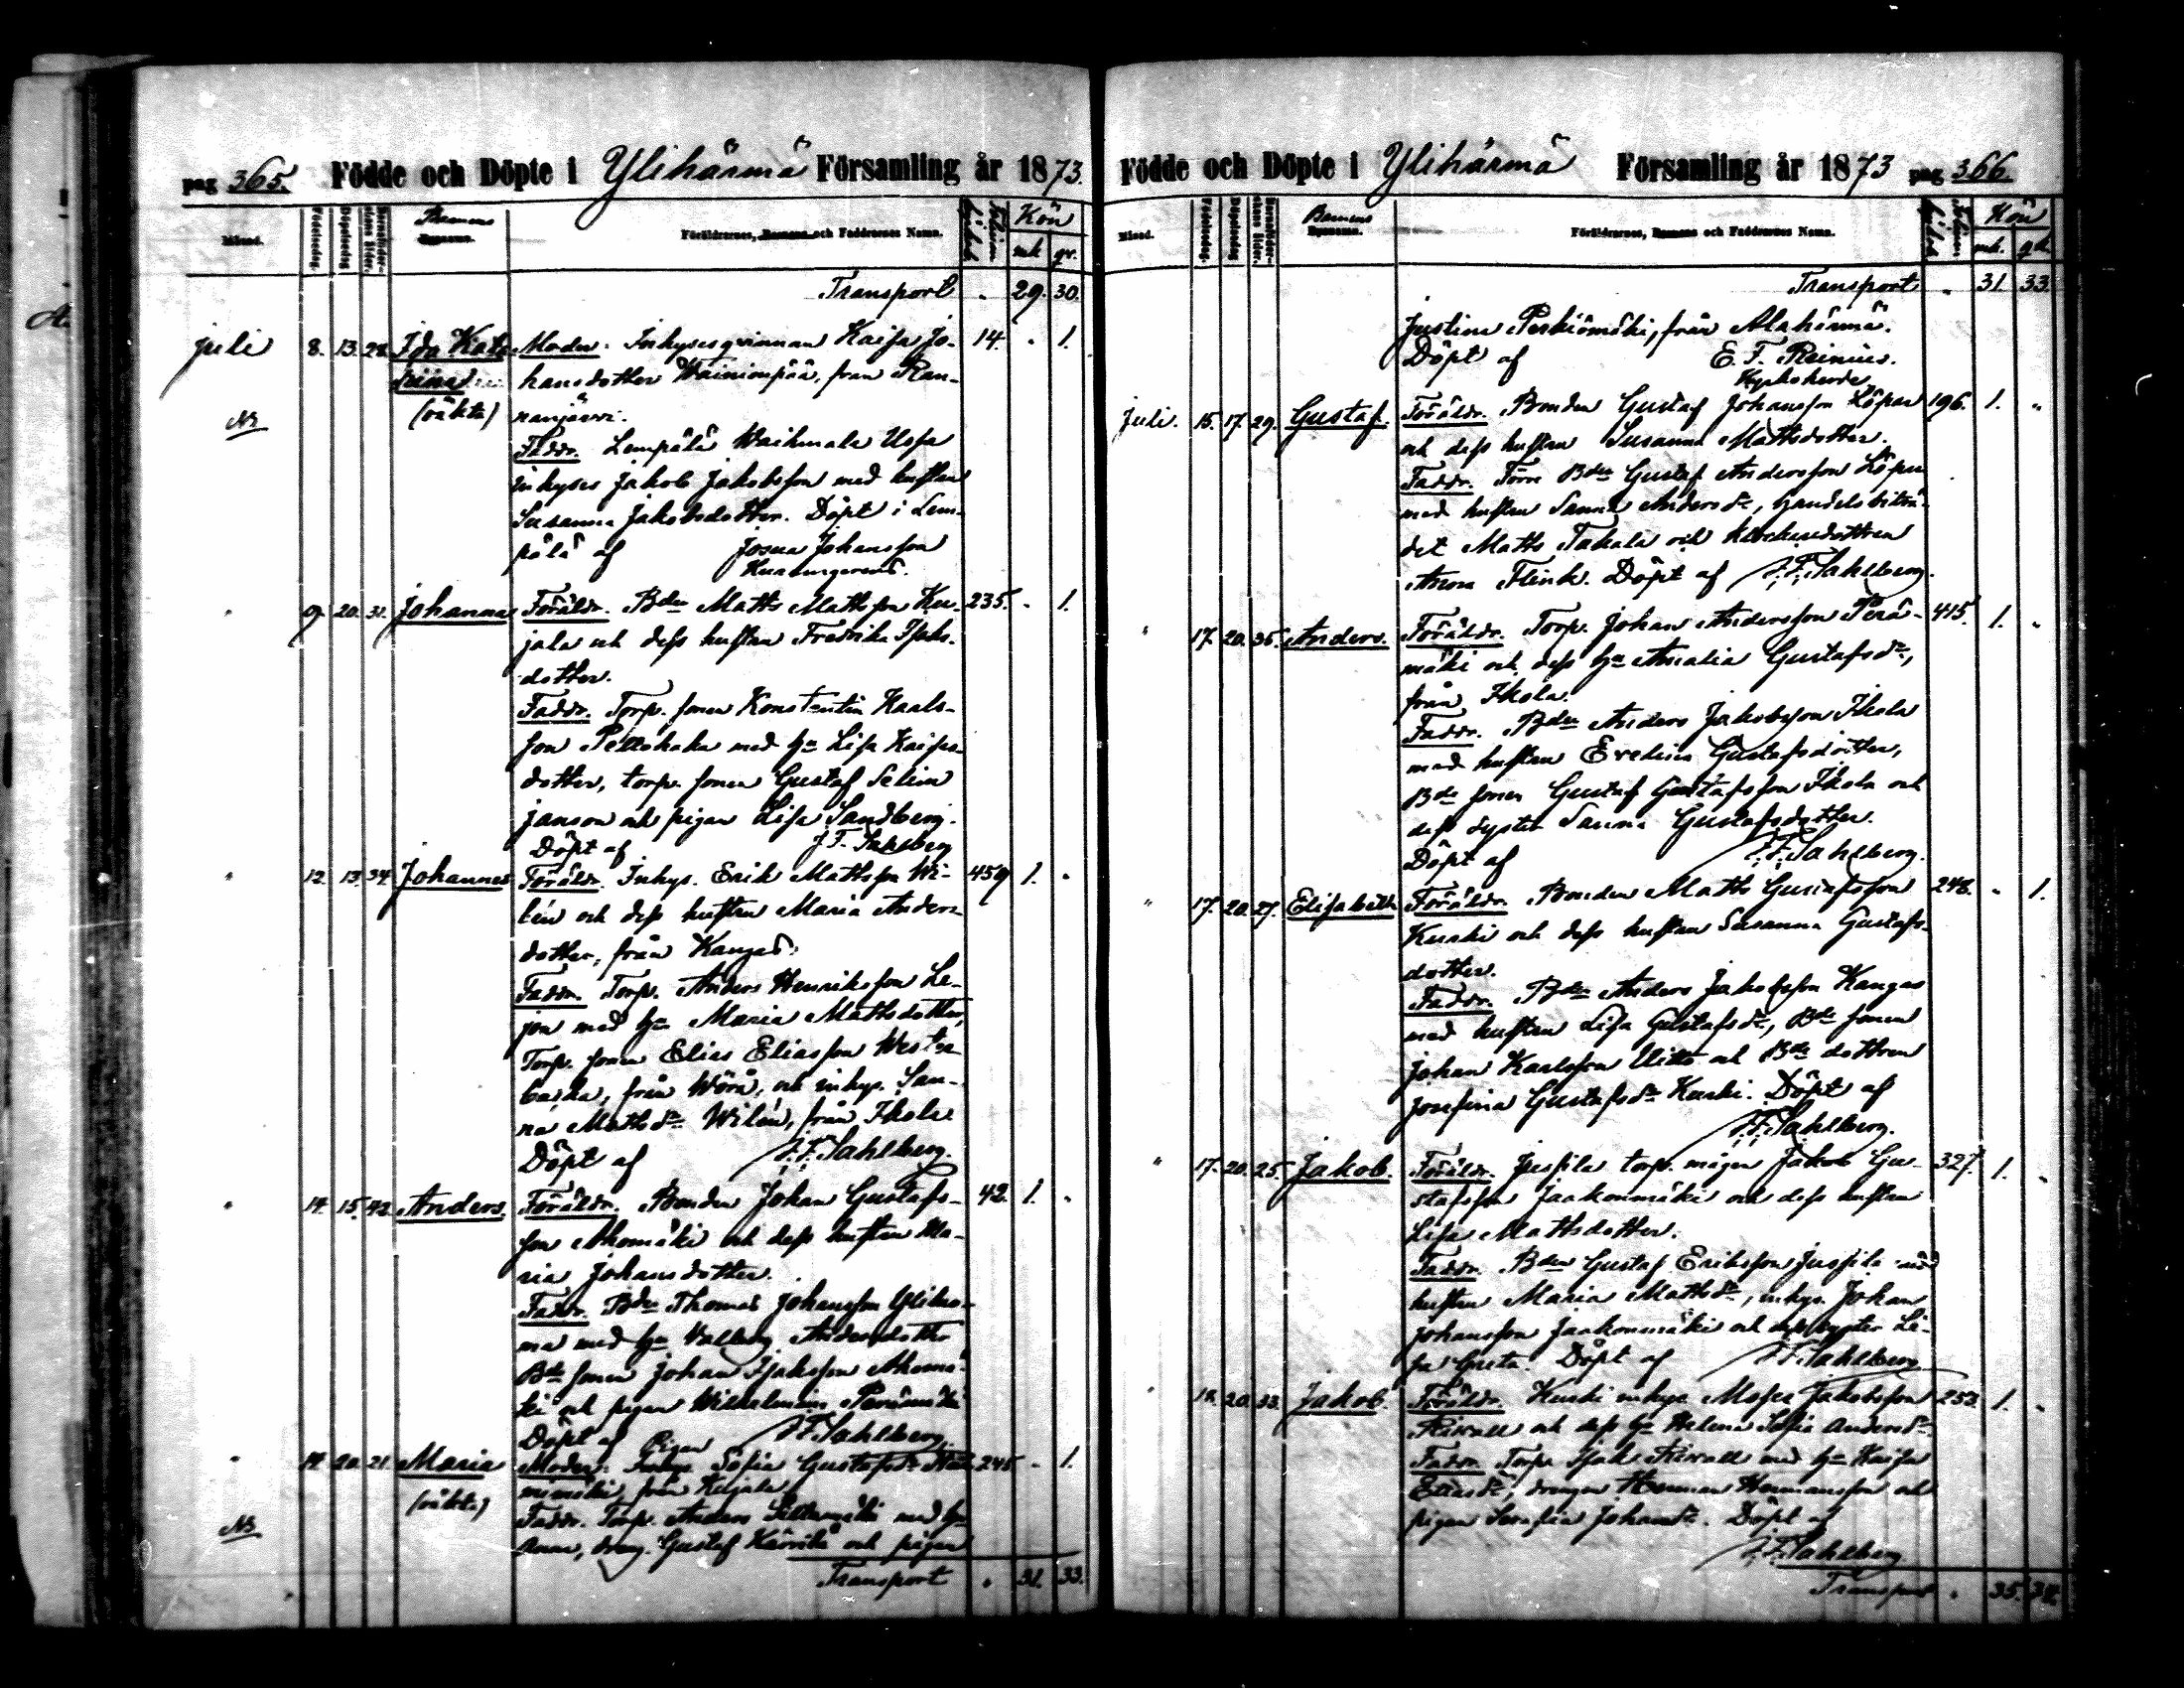 pag 365. Födde och Döpte i Ylihärmä Församling år 1873.
Månad. Födelsedag. Döpelsedag Barnaföderskans ålder. Barnens Föräldrarnes, och Faddrarnes Namn. Kön
mk qv.
Transport . 29. 30.
juli 8. 13. 28. Ida Kata Moder. Inhysesqvinnan Kaisa Jo- 14. . 1.
rina hansdotter Wäinionpää, från Ran-
(oäkta) nanjärvi.
No
Faddr. Lempälä Waihmala Uspa
inhyses Jakob Jakobsson med hustru
Susanna Jakobsdotter. Döpt i Lem-
pälä af Josua Johansson
" 9. 20. 31. Johanna Föräldr. Bden Matts Mattsson Ku- 235. . 1.
jala och dess hustru Fredrika Isaks-
dotter.
Faddr. Torp. sonen Konstantin Karls-
son Peltohaka med hu Lisa Kaisa-
dotter, torp. sonen Gustaf Selim
Janson och pigan Lisa Sandberg.
Döpt af J. F. Sahlberg
" 12. 13. 34. Johannes Föräldr. Inhys. Erik Mattsson Wi- 459 1. .
lén och dess hustru Maria Anders-
dotter, från Kangas.
Faddr. Torp. Anders Henriksson Le-
jon med hu Maria Mattsdotter,
Torp. sonen Elias Eliasson Wester-
backa, från Wörå, och inhys. San-
na Matts dr Wilén, från Ikola.
Döpt af J. F. Sahlberg.
" 14. 15. 42. Anders. Föräldr. Bonden Johan Gustafs- 42. 1. .
son Ahomäki och dess hustru Ma-
ria Johansdotter.
Faddr. Bden Thomas Johansson Yliluo-
ma med hu Valborg Andersdotter
Bde sonen Johan Isaksson Ahomä-
ki och pigan Wilhelmina Perämäki
Döpt af J. F. Sahlberg.
Pigan
" 14. 20. 21. Maria Moder. Sofia Gustafsdr 245 . 1.
(oäkta) nimäki, från Kujala
No
Faddr. Torp. Anders med hu
Anna, dreng. Gustaf och pigan
Transport . 31. 33.
Födde och Döpte i Ylihärmä Församling år 1873 pag 366.
Månad. Födelsedag. Döpelsedag Barnaföderskans ålder. Barnens Föräldrarnes, och Faddrarnes Namn. Kön
mk. qv.
Transport . 31. 33.
Justina Perkiömäki, från Alahärmä.
Döpt af E. F. Reinius.
Kyrkoherde
Juli. 15. 17. 29. Gustaf. Föräldr. Bonden Gustaf Johansson Löpar 196. 1. "
och dess hustru Susanna Mattsdotter.
Faddr. Förre Bden Gustaf Andersson Löpar
med hustru Sanna Anders dr, handelsbiträ-
det Matts Takala och klockaredottren
Anna Flink. Döpt af J. F. Sahlberg.
" 17. 20. 35. Anders. Föräldr. Torp. Johan Andersson Perä- 415. 1. .
mäki och dess hu Amalia Gustafsdr,
från Ikola.
Faddr. Bden Anders Jakobsson Ikola
med hustru Evelina Gustafsdotter,
Bde sonen Gustaf Gustafsson Ikola och
dess syster Sanna Gustafsdotter.
Döpt af J. F. Sahlberg.
" 17. 20. 27. Elisabeth Föräldr. Bonden Matts Gustafsson 248. . 1.
Kuski och dess hustru Susanna Gustafs-
dotter.
Faddr. Bden Anders Jakobsson Kangas
med hustru Lisa Gustafsdr, Bde sonen
Johan Karlsson Uitto och Bde dottren
Josefina Gustafsdr Kuski. Döpt af
J. F. Sahlberg.
" 17. 20. 25. Jakob. Föräldr. Jussila torp. mågen Jakob Gu- 327. 1. .
stafsson Jaakonmäki och dess hustru
Lisa Mattsdotter.
Faddr. Bden Gustaf Eriksson Jussila med
hustru Maria Mattsdr, inhys. Johan
Johansson Jaakonmäki och dess syster Li-
sa Greta. Döpt af J. F. Sahlberg
" 18. 20. 33. Jakob. Föräldr. Kuski inhys. Moses Jakobsson 253. 1. .
och dess hu Helena Sofia Andersdr
Faddr. Torp. Isak med hu Kaisa
Eliasdr, drengen Herman Hermansson och
pigan Serafia Johansdr. Döpt af
J. F. Sahlberg
Transport . 35. 34.